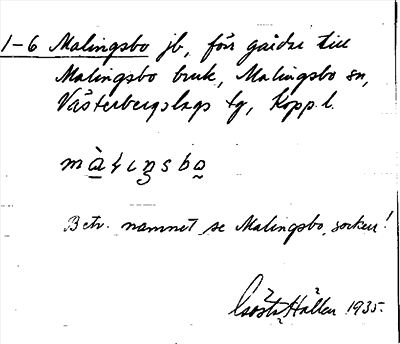 1-6 Malingsbo jb, förr gårdar till
Malingsbo bruk, Malingsbo sn,
Västerbergslags tg, Kopp. l.
Betr. namnet se Malingsbo, socken!
Gösta Hallén 1935.